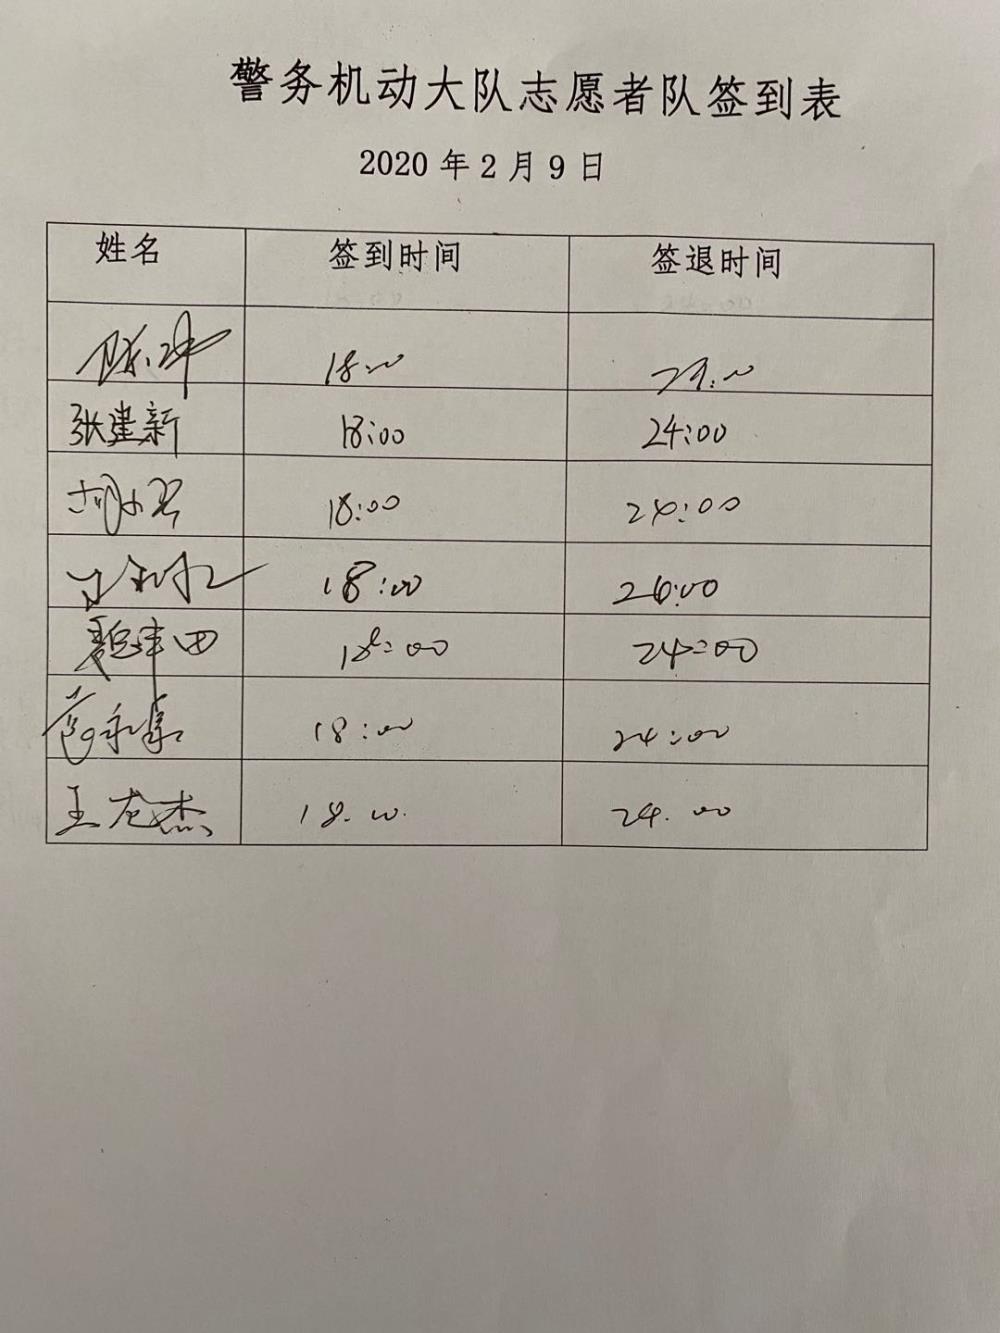 警务机动大队志愿者队签到表
2020 年 2 月 9 日
姓名 签到时间 签退时间
陈冲 18:00
张建新 18:00 24:00
胡小 18:00 24:00
18:00 24:00
18:00 24:00
18:00 24:00
王龙杰 18.00 24.00